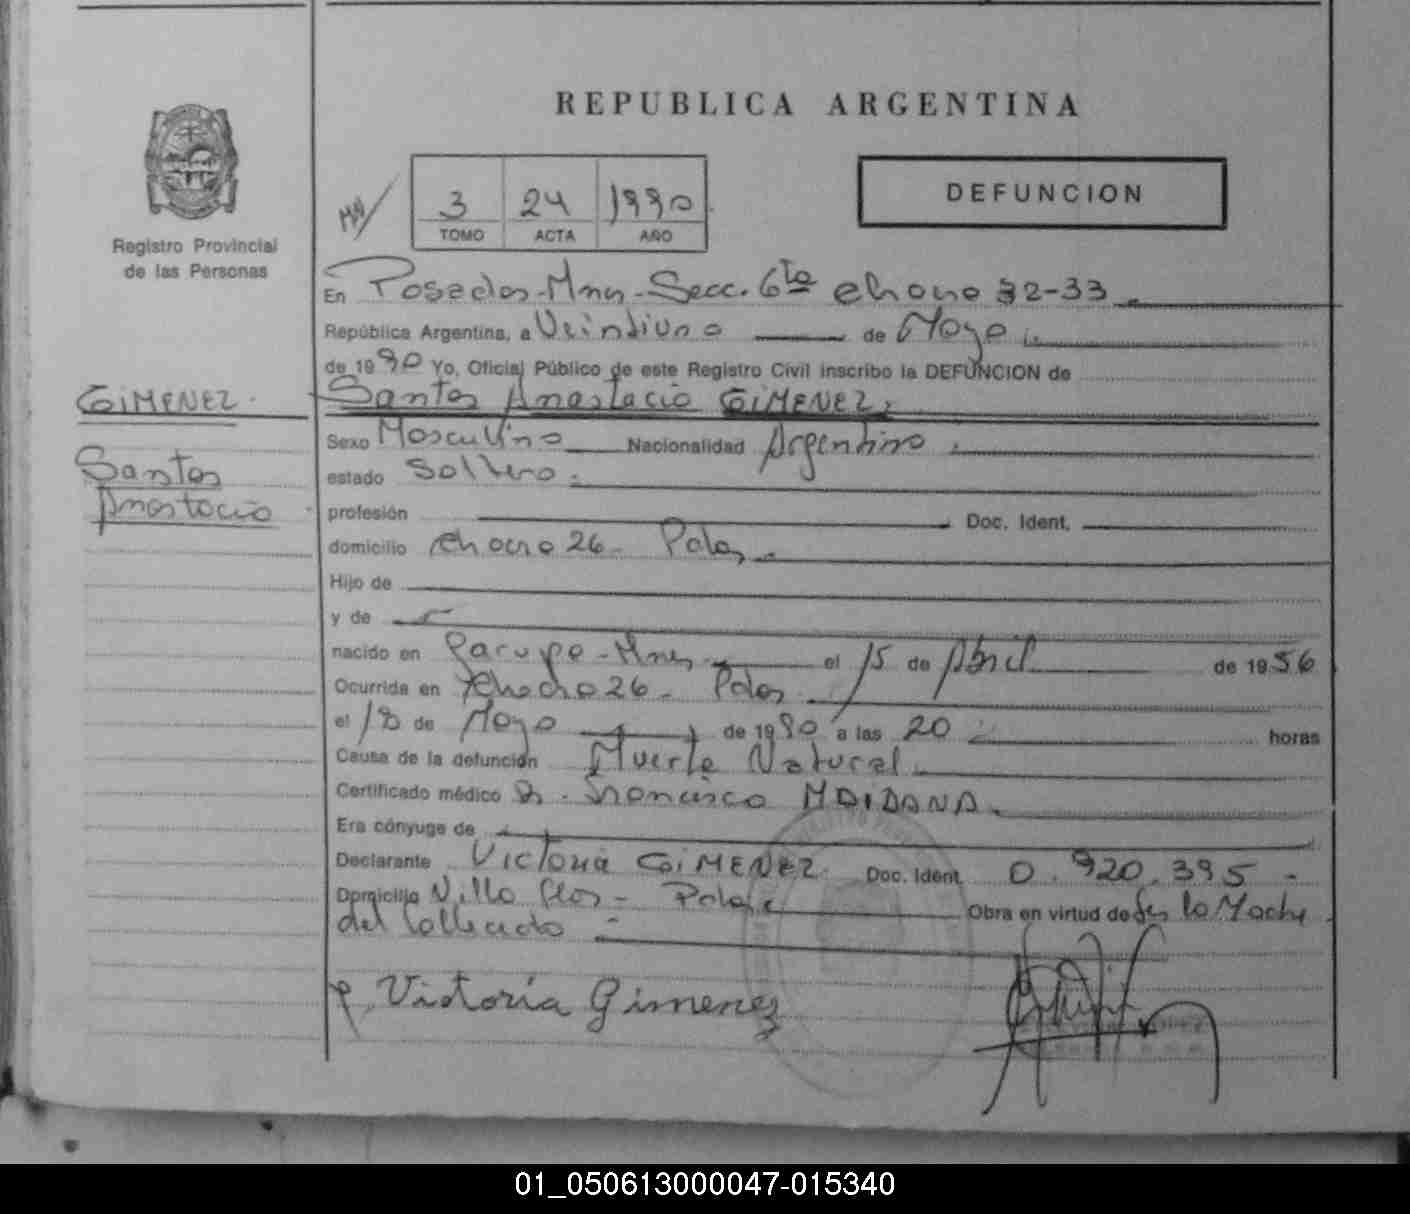 REPUBLICA ARGENTINA
DEFUNCION
3 24 1990
TOMO ACTA AÑO
Registro Provincial
de las Personas
En Posadas-Mnes-Secc. 6ta chacra 32-33
República Argentina, a Veintiuno de Mayo
de 1990 Yo, Oficial Público de este Registro Civil inscribo la DEFUNCION de
GIMENEZ.
Santos Anastacio GIMENEZ.
Sexo Masculino Nacionalidad Argentino.
Santos
Anastacio
estado Soltero.
profesión Doc. Ident.
domicilio chacra 26- Pdas.
Hijo de
y de
nacido en Garupa-Mnes- el 15 de Abril de 1956
Ocurrida en chacra 26- Pdas
el 18 de Mayo de 1990 a las 20 horas
Causa de la defunción Muerte Natural.
Certificado médico Dr. Francisco MAIDANA.
Era cónyuge de
Declarante Victoria GIMENEZ. Doc. Ident. 0.920.395-
Domicilio Villa flor- Pdas Obra en virtud de Ser la Madre
del fallecido
Victoria Gimenez
01_050613000047-015340